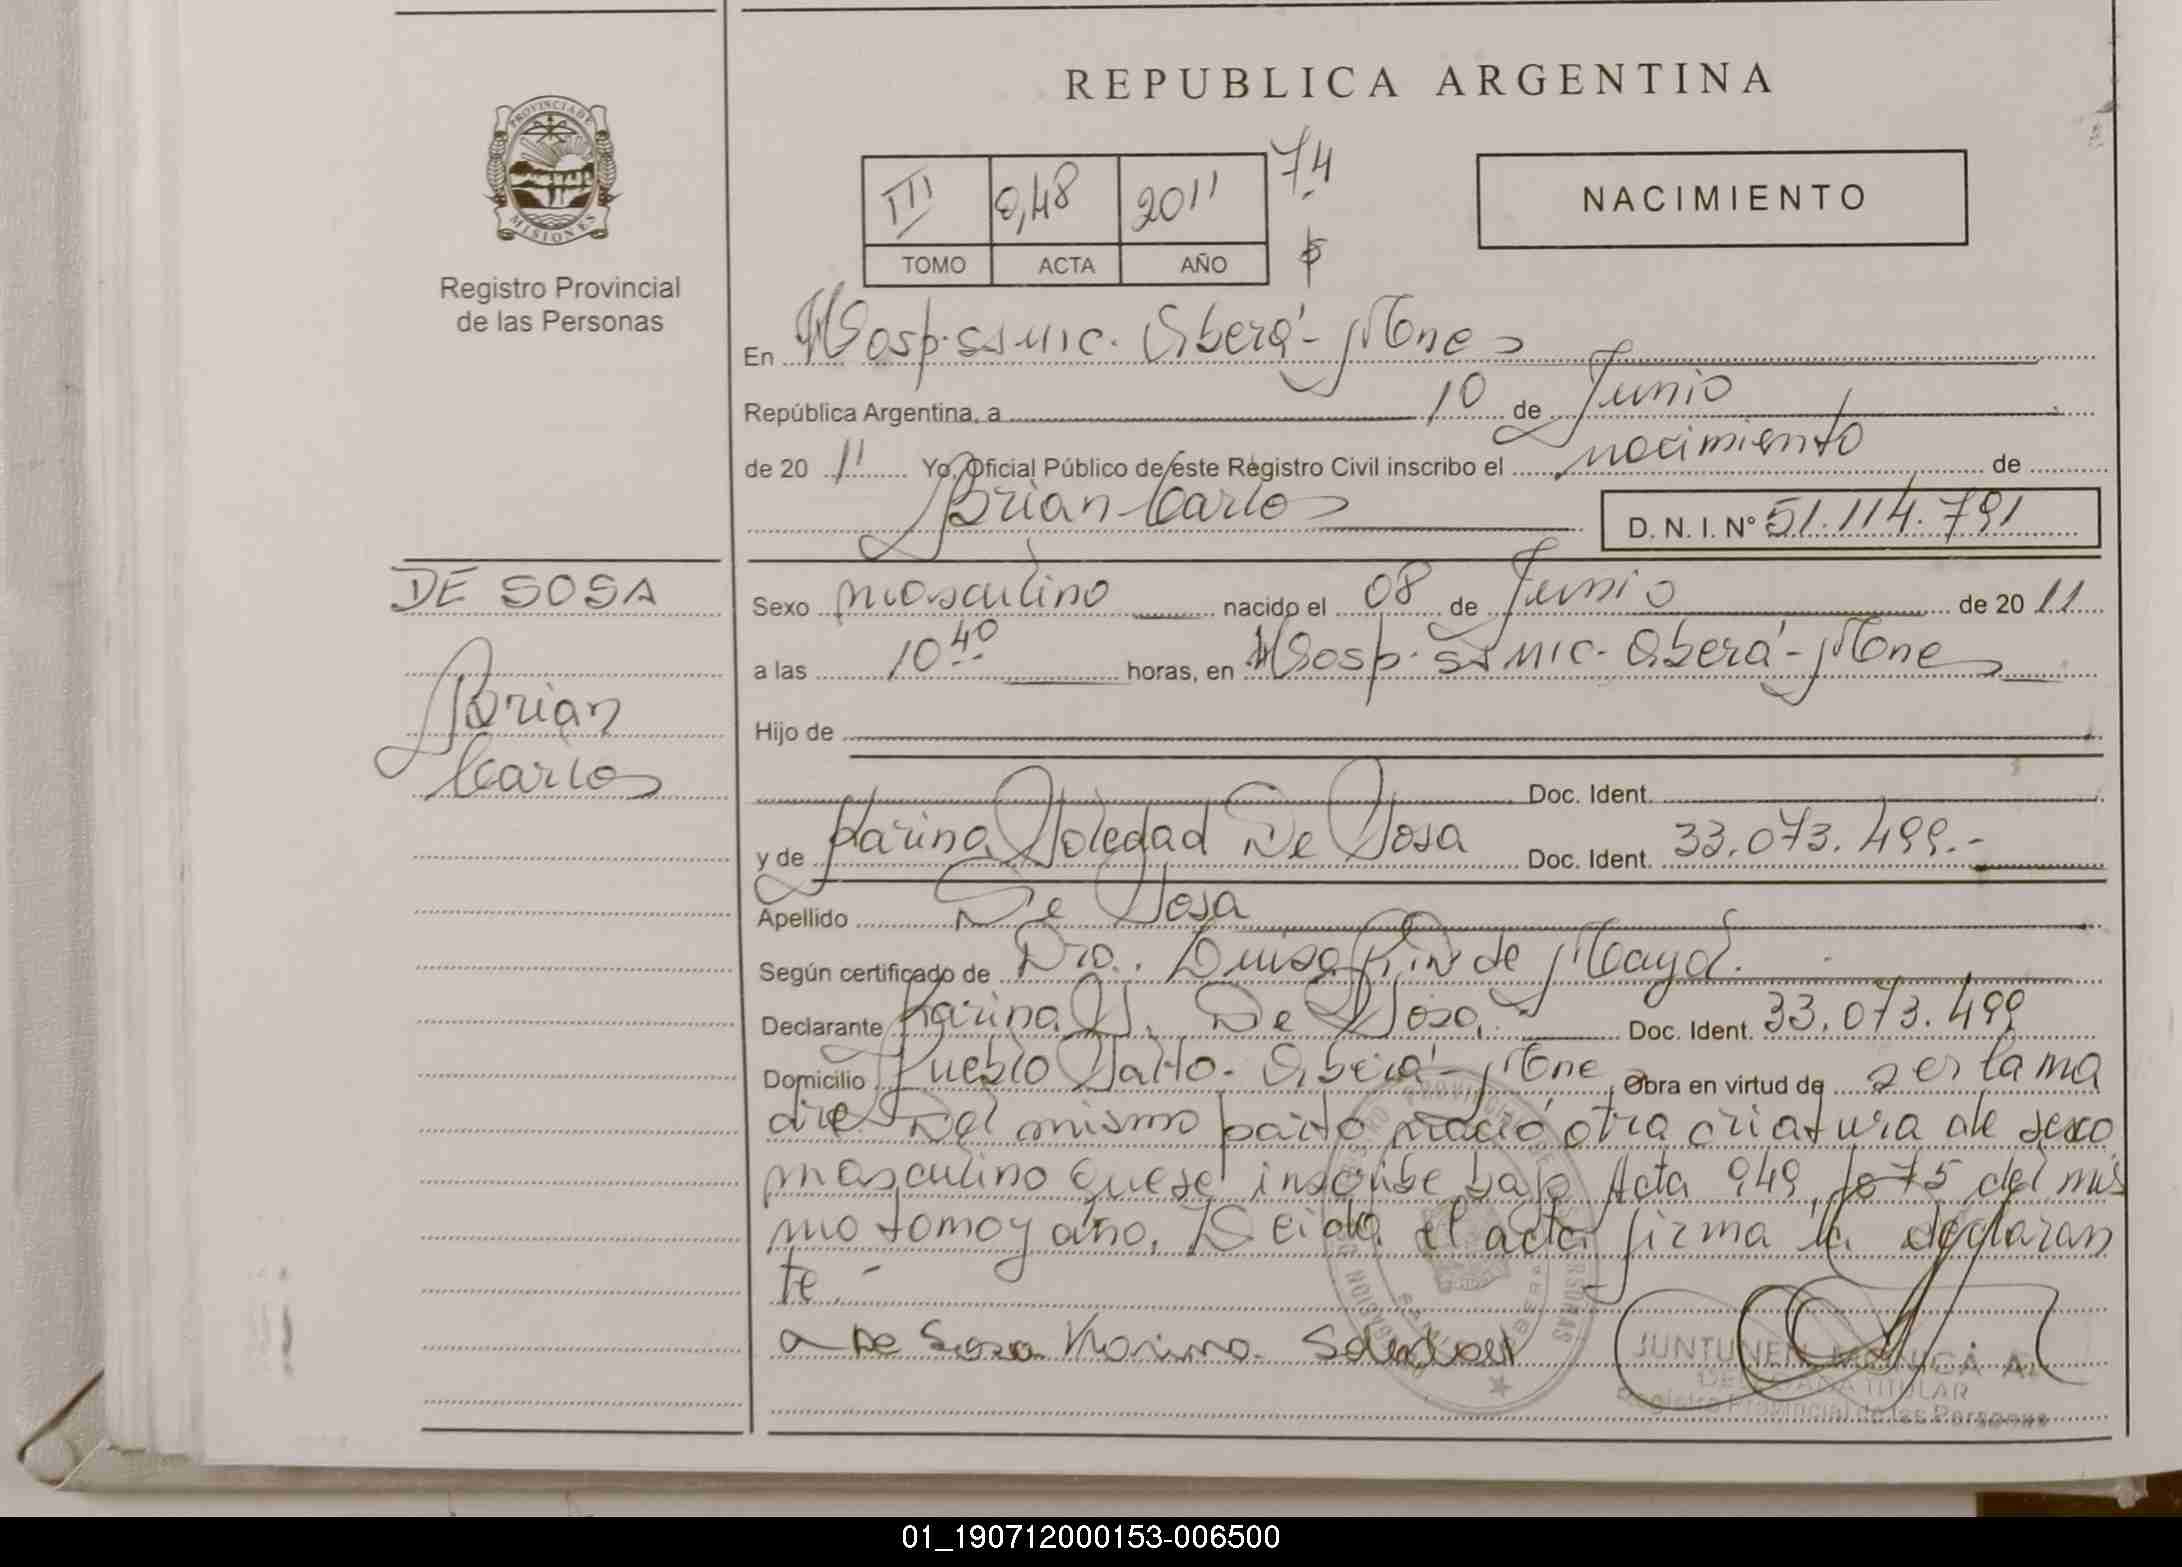 REPUBLICA ARGENTINA
PROVINCIA DE
MISIONES
Registro Provincial
de las Personas
III 948 2011 74
TOMO ACTA AÑO
NACIMIENTO
En Hosp. SS MIC. Oberá - Mnes
República Argentina, a 10 de Junio
de 20 11 Yo, Oficial Público de éste Registro Civil inscribo el nacimiento de
Brian Carlos
D. N. I. Nº 51.114.791
DE SOSA
Brian
Carlos
Sexo masculino nacido el 08 de Junio de 20 11
a las 10 40 horas, en Hosp. SS MIC. Oberá - Mnes
Hijo de
Doc. Ident.
y de Karina Soledad De Sosa Doc. Ident. 33.073.499.-
Apellido De Sosa
Según certificado de Dra. Luisa de
Declarante Karina S. De Sosa Doc. Ident. 33.073.499
Domicilio Pueblo Salto - Oberá - Mne Obra en virtud de ser la ma
dre Del mismo parto nació otra criatura de sexo
masculino que se inscribe bajo Acta 949, fo 75 del mis
mo tomo y año. Leida el acta firma la declaran
te.-
De Sosa Karina Soledad
JUNTUNEN MONICA A.
DELEGADA TITULAR
Registro Provincial de las Personas
01_190712000153-006500